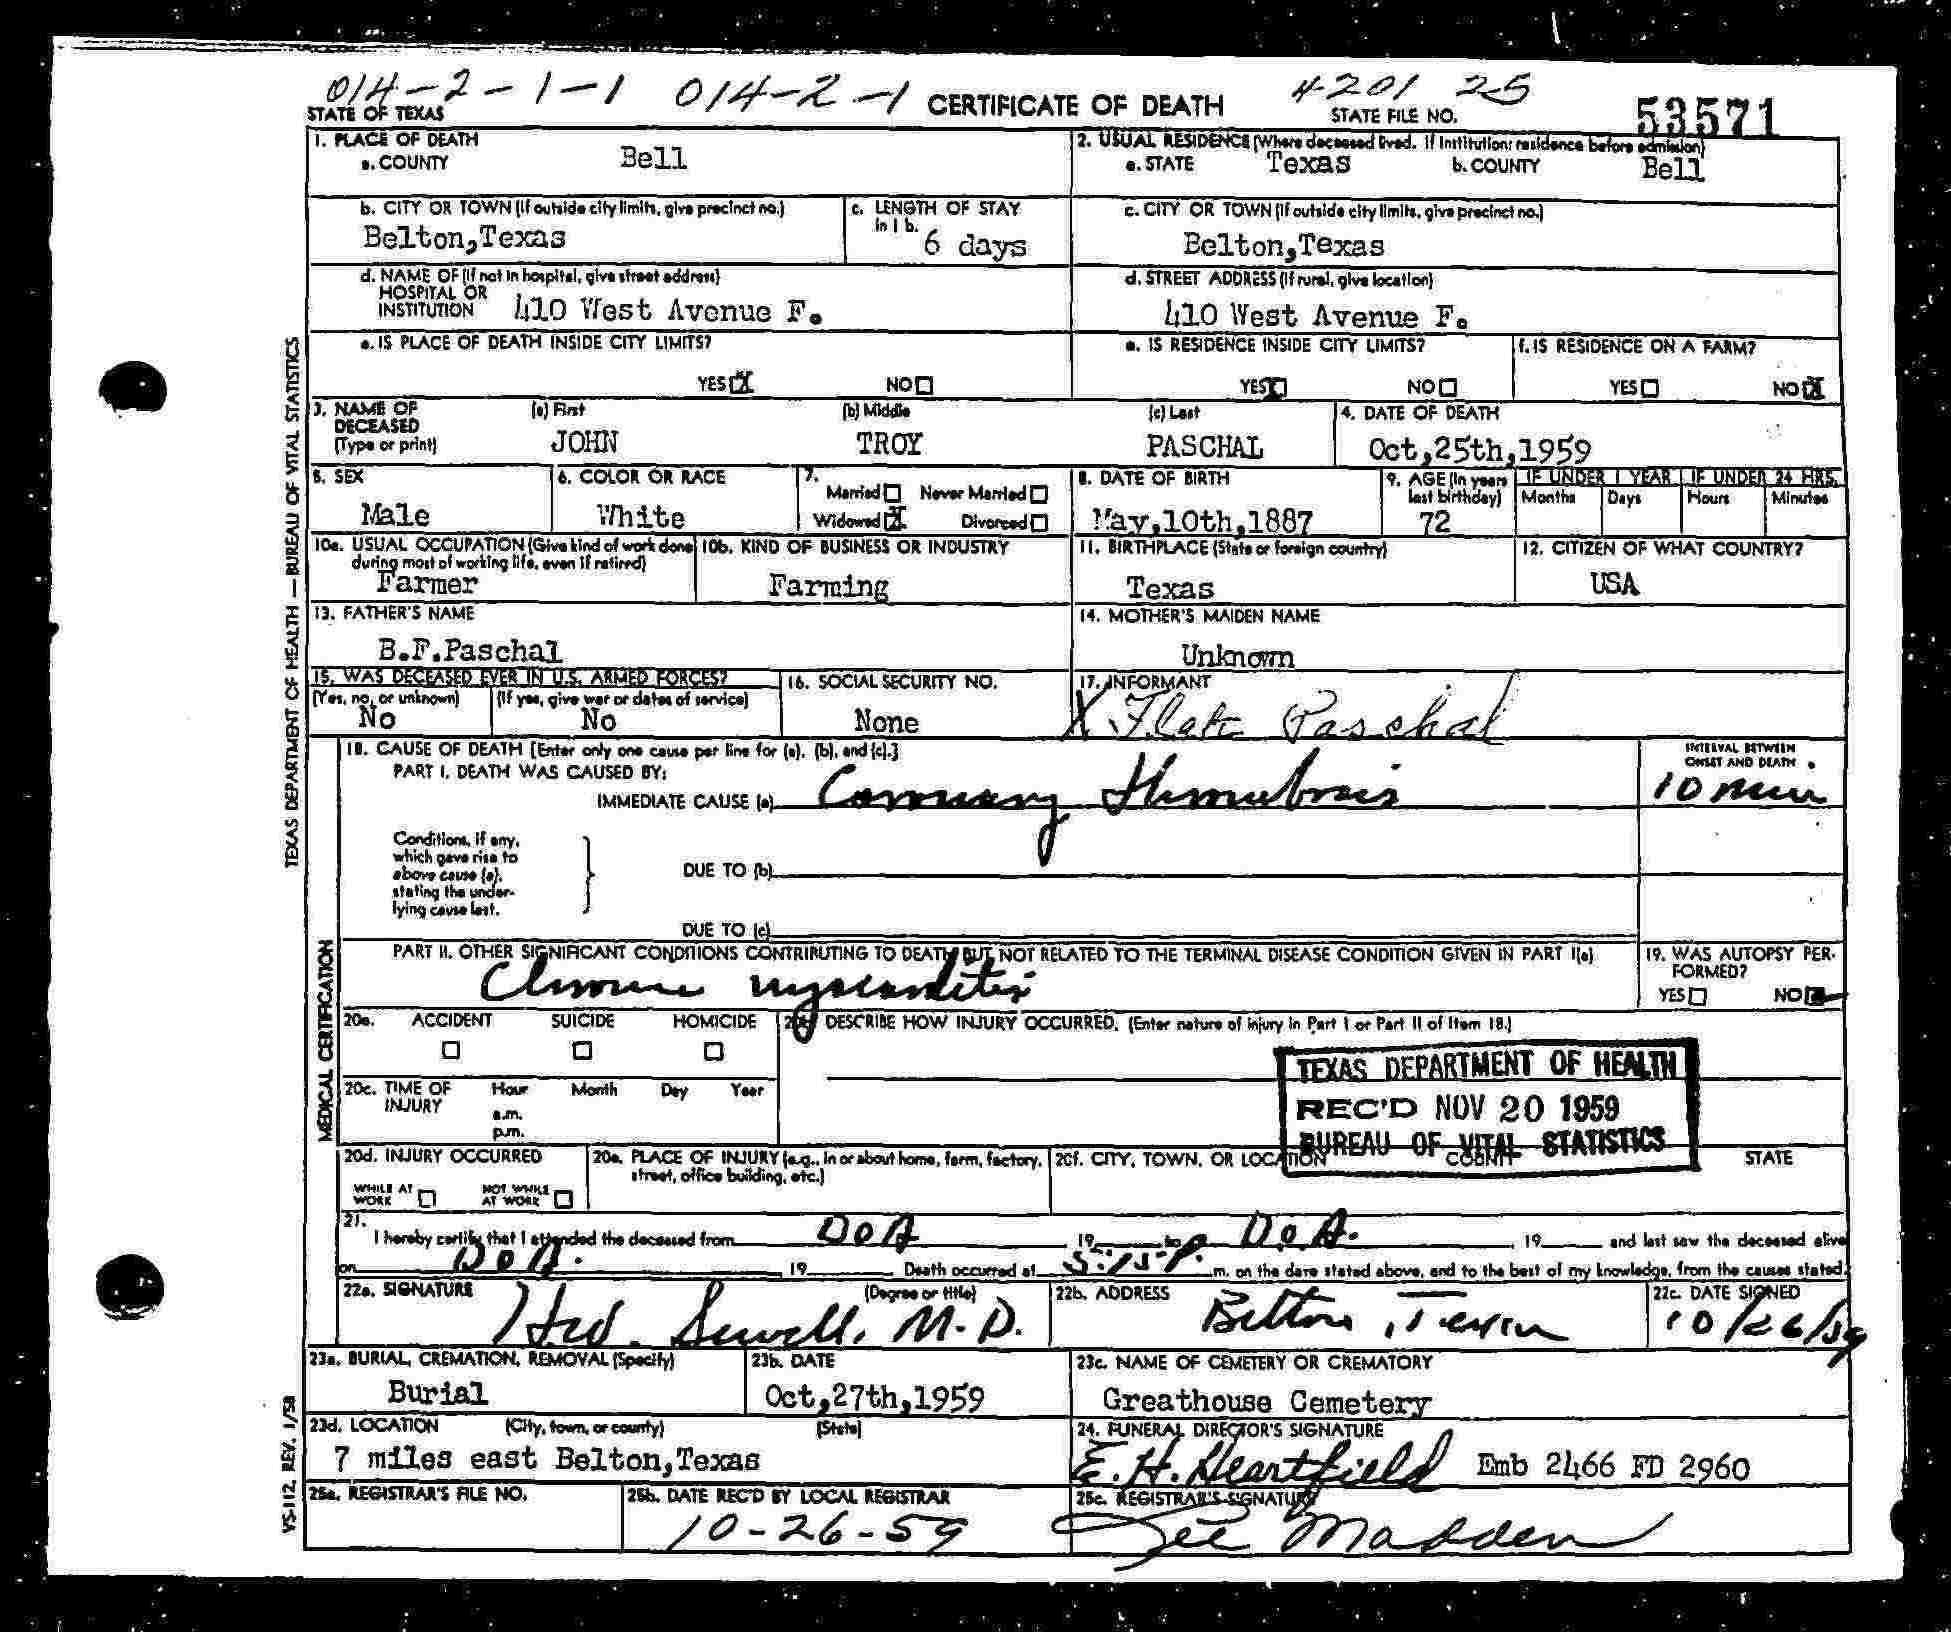 014-2-1-1 014-2-1 4201 25
STATE OF TEXAS CERTIFICATE OF DEATH STATE FILE NO. 53571
TEXAS DEPARTMENT OF HEALTH — BUREAU OF VITAL STATISTICS
1. PLACE OF DEATH
a. COUNTY Bell
2. USUAL RESIDENCE (Where deceased lived. If institution: residence before admission)
a. STATE Texas b. COUNTY Bell
b. CITY OR TOWN (If outside city limits, give precinct no.)
Belton,Texas
c. LENGTH OF STAY
in 1 b. 6 days
c. CITY OR TOWN (If outside city limits, give precinct no.)
Belton,Texas
d. NAME OF (If not in hospital, give street address)
HOSPITAL OR
INSTITUTION 410 West Avenue F.
d. STREET ADDRESS (If rural, give location)
410 West Avenue F.
e. IS PLACE OF DEATH INSIDE CITY LIMITS?
YES X NO
e. IS RESIDENCE INSIDE CITY LIMITS?
YES X NO
f. IS RESIDENCE ON A FARM?
YES NO X
3. NAME OF
DECEASED
(Type or print)
(a) First (b) Middle (c) Last
JOHN TROY PASCHAL
4. DATE OF DEATH
Oct,25th,1959
5. SEX
Male
6. COLOR OR RACE
White
7.
Married Never Married
Widowed X Divorced
8. DATE OF BIRTH
May,10th,1887
9. AGE (In years
last birthday)
72
IF UNDER 1 YEAR IF UNDER 24 HRS.
Months Days Hours Minutes
10a. USUAL OCCUPATION (Give kind of work done
during most of working life, even if retired)
Farmer
10b. KIND OF BUSINESS OR INDUSTRY
Farming
11. BIRTHPLACE (State or foreign country)
Texas
12. CITIZEN OF WHAT COUNTRY?
USA
13. FATHER'S NAME
B.F.Paschal
14. MOTHER'S MAIDEN NAME
Unknown
15. WAS DECEASED EVER IN U.S. ARMED FORCES?
(Yes, no, or unknown) (If yes, give war or dates of service)
No No
16. SOCIAL SECURITY NO.
None
17. INFORMANT
X Paschal
MEDICAL CERTIFICATION
18. CAUSE OF DEATH [Enter only one cause per line for (a), (b), and (c).]
PART I. DEATH WAS CAUSED BY:
IMMEDIATE CAUSE (a) Coronary Thrombosis
INTERVAL BETWEEN
ONSET AND DEATH
10 min
Conditions, if any,
which gave rise to
above cause (a),
stating the under-
lying cause last.
DUE TO (b)
DUE TO (c)
PART II. OTHER SIGNIFICANT CONDITIONS CONTRIBUTING TO DEATH BUT NOT RELATED TO THE TERMINAL DISEASE CONDITION GIVEN IN PART I(a)
Chronic myocarditis
19. WAS AUTOPSY PER-
FORMED?
YES NO
20a. ACCIDENT SUICIDE HOMICIDE
20b. DESCRIBE HOW INJURY OCCURRED. (Enter nature of injury in Part I or Part II of Item 18.)
20c. TIME OF
INJURY
Hour Month Day Year
a.m.
p.m.
TEXAS DEPARTMENT OF HEALTH
REC'D NOV 20 1959
BUREAU OF VITAL STATISTICS
20d. INJURY OCCURRED
WHILE AT
WORK
NOT WHILE
AT WORK
20e. PLACE OF INJURY (e.g., in or about home, farm, factory,
street, office building, etc.)
20f. CITY, TOWN, OR LOCATION COUNTY STATE
21.
I hereby certify that I attended the deceased from DOA 19 to D.O.A. , 19 and last saw the deceased alive
on DOA. , 19 Death occurred at 5:15 P. m. on the date stated above, and to the best of my knowledge, from the causes stated.
22a. SIGNATURE (Degree or title)
Sewell, M.D.
22b. ADDRESS
Belton, Texas
22c. DATE SIGNED
10/26/59
23a. BURIAL, CREMATION, REMOVAL (Specify)
Burial
23b. DATE
Oct,27th,1959
23c. NAME OF CEMETERY OR CREMATORY
Greathouse Cemetery
23d. LOCATION (City, town, or county) (State)
7 miles east Belton,Texas
24. FUNERAL DIRECTOR'S SIGNATURE
E.H. Heartfield Emb 2466 FD 2960
25a. REGISTRAR'S FILE NO.
25b. DATE REC'D BY LOCAL REGISTRAR
10-26-59
25c. REGISTRAR'S SIGNATURE
Madden
VS-112, REV. 1/58